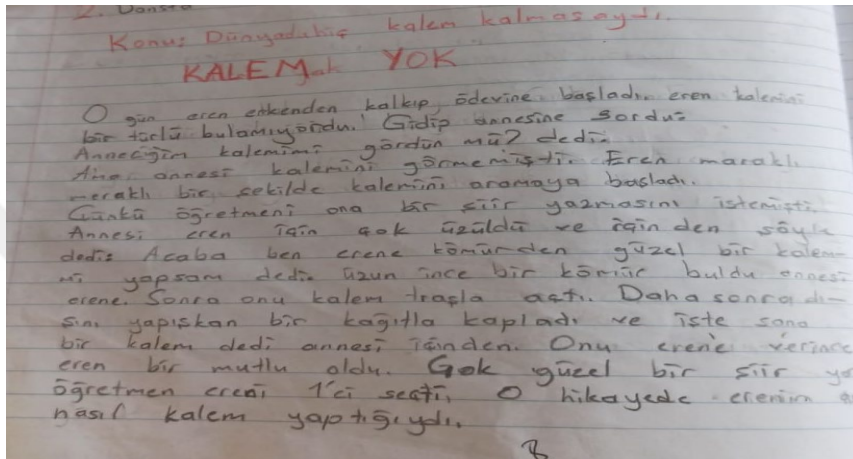 2.
Konu: Dünyada hiç kalem kalmasaydı.
KALEM YOK
O gün eren erkenden kalkıp ödevine başladı. eren kalemini
bir türlü bulamıyordu. Gidip annesine sordu:
Anneciğim kalemimi gördün mü? dedi.
annesi kalemini görmemişti. Eren meraklı
meraklı bir şekilde kalemini aramaya başladı.
Çünkü öğretmeni ona bir şiir yazmasını istemişti.
Annesi eren için çok üzüldü ve için den şöyle
dedi: Acaba ben erene kömürden güzel bir kalem
mi yapsam dedi. Uzun ince bir kömür buldu annesi
erene. Sonra onu kalem traşla açtı. Daha sonra dı-
şını yapışkan bir kağıtla kapladı ve işte sana
bir kalem dedi annesi içinden. Onu eren'e verince
eren bir mutlu oldu. Çok güzel bir şiir
öğretmen ereni 1'ci seçti. O hikayede erenim
nasıl kalem yaptığıydı.